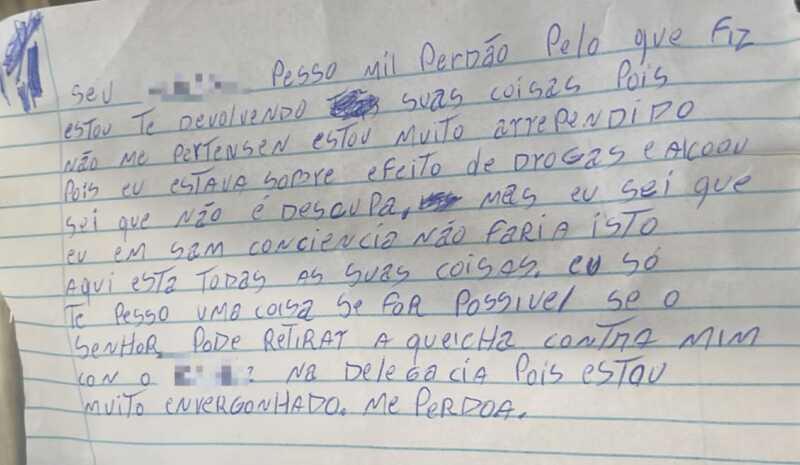 seu Pesso mil Perdão Pelo que Fiz
estou Te Devolvendo suas coisas Pois
não me Pertensen estou muito arrependido
Pois eu estava sobre efeito de Drogas e Alcoou
sei que não é Descupa, mas eu sei que
eu em sam conciencia não faria isto
Aqui esta Todas As suas coisas. eu só
Te Pesso uma coisa se for Possivel se o
senhor Pode Retirat A queicha contra mim
con o na Delegacia Pois estou
muito envergonhado. me Perdoa.